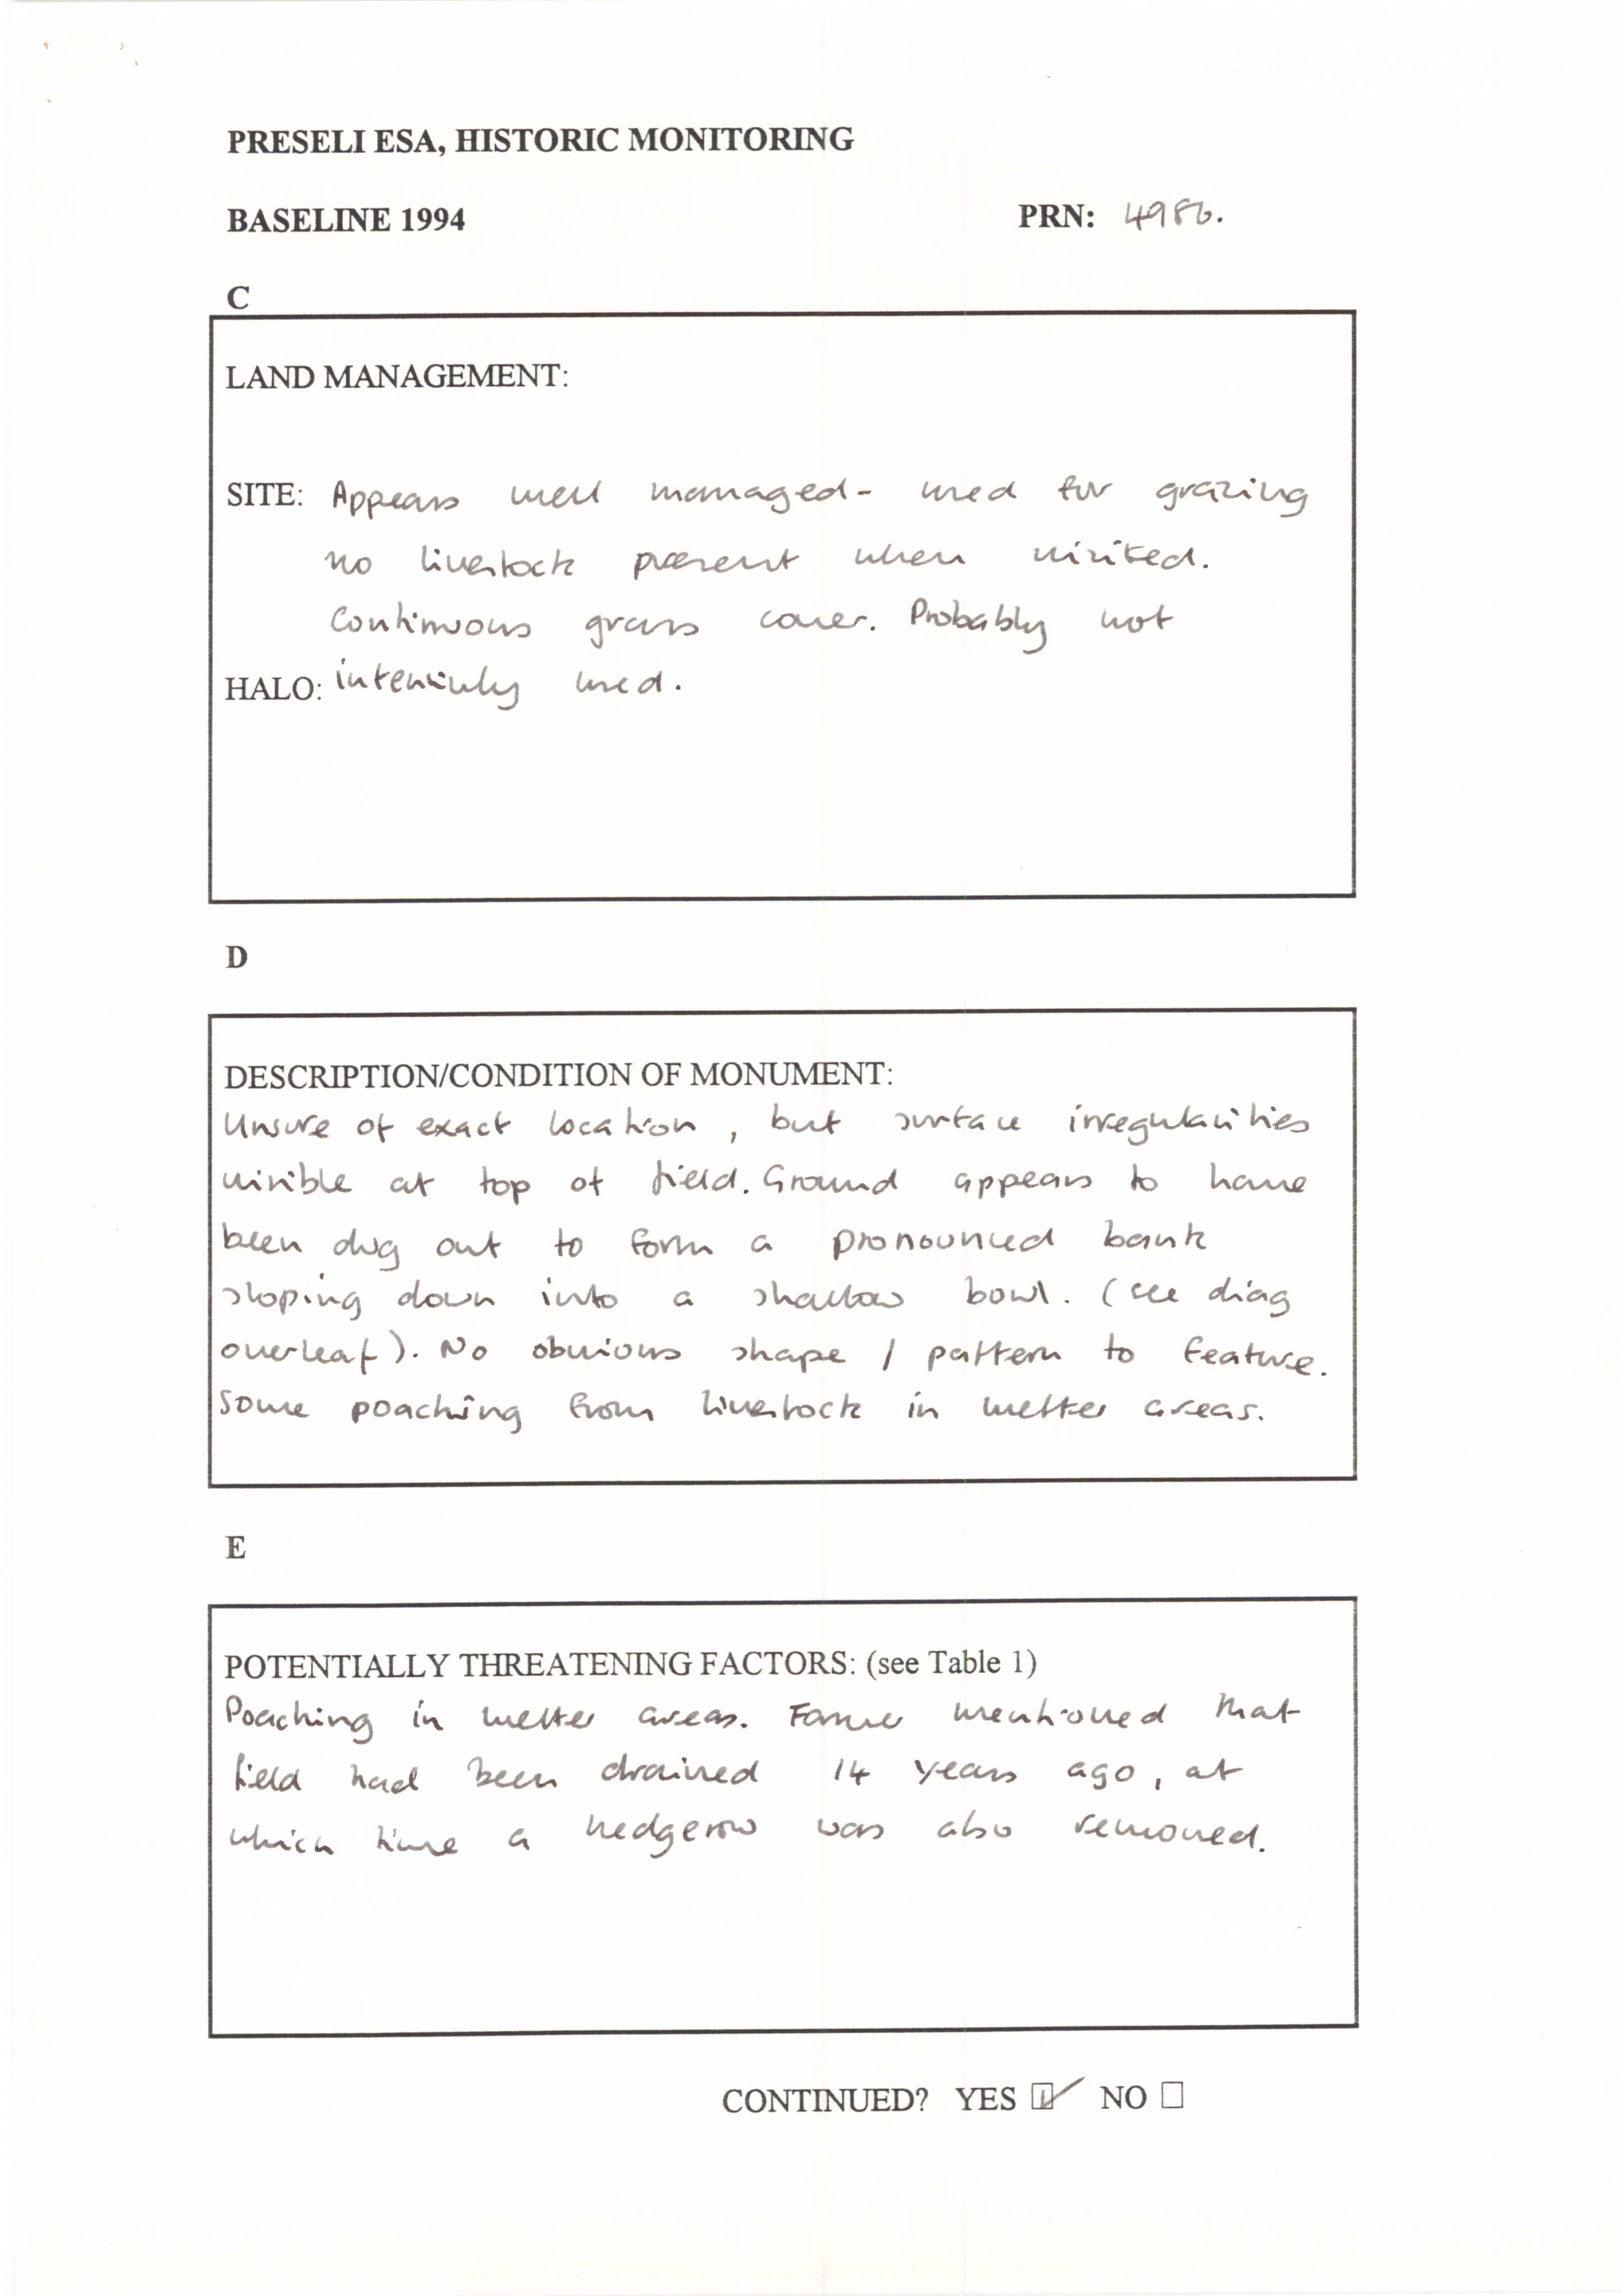 PRESELI ESA, HISTORIC MONITORING
BASELINE 1994
PRN: 4986.
C
LAND MANAGEMENT:
SITE: Appears well managed - used for grazing
no livestock present when visited.
Continuous grass cover. Probably not
HALO: intensively used.
D
DESCRIPTION/CONDITION OF MONUMENT:
Unsure of exact location, but surface irregularities
visible at top of field. Ground appears to have
been dug out to form a pronounced bank
sloping down into a shallow bowl. (see diag
overleaf). No obvious shape / pattern to feature.
Some poaching from livestock in wetter areas.
E
POTENTIALLY THREATENING FACTORS: (see Table 1)
Poaching in wetter areas. Farmer mentioned that
field had been drained 14 years ago, at
which time a hedgerow was also removed.
CONTINUED? YES ☑ NO ☐